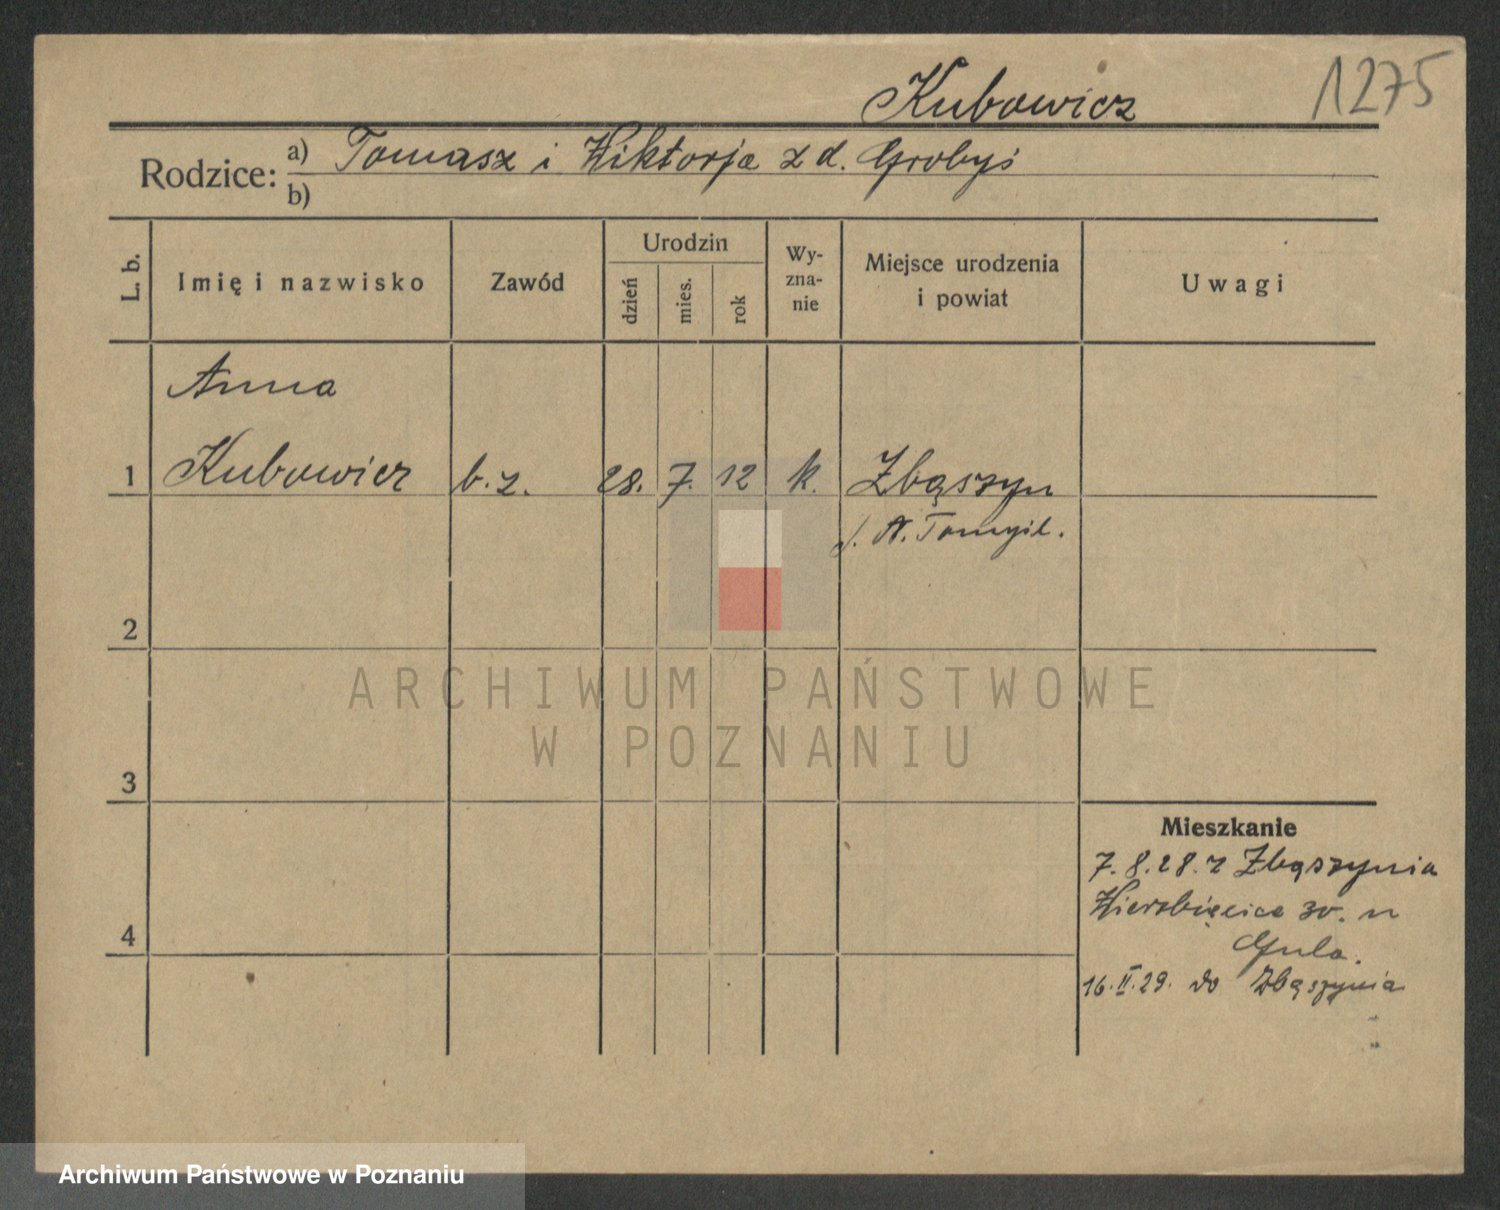 Kubowicz
1275
Rodzice:
a) Tomasz i Wiktorja z d. Grobyś
b)
L. b.
Imię i nazwisko
Zawód
Urodzin
dzień
mies.
rok
Wy-
zna-
nie
Miejsce urodzenia
i powiat
Uwagi
Anna
1 Kubowicz b. z. 28. 7. 12 k. Zbąszyn
N. Tomyśl.
2
3
4
Mieszkanie
7. 8. 28. z Zbąszynia
Wierzbięcice 30. u
Gula.
16. II. 29. do Zbąszynia
ARCHIWUM PAŃSTWOWE
W POZNANIU
Archiwum Państwowe w Poznaniu